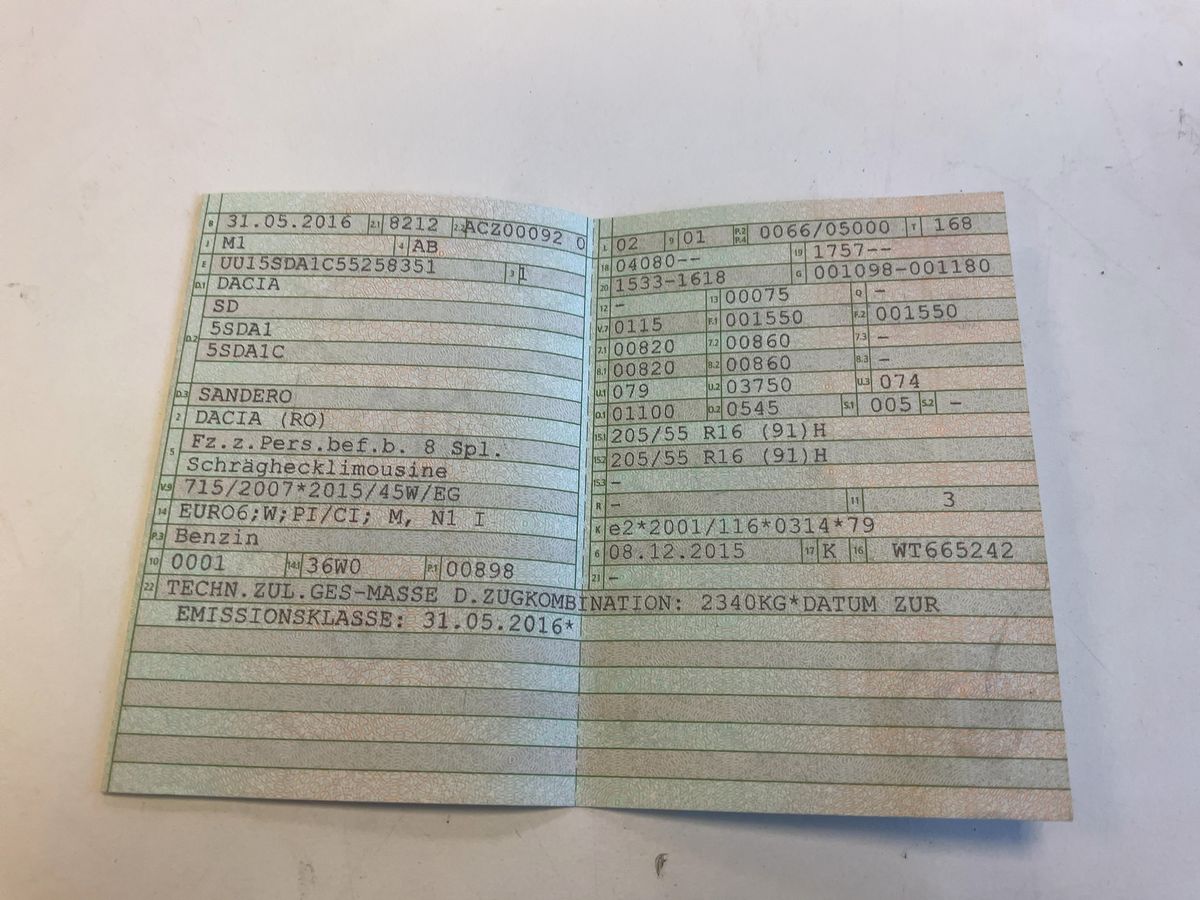 B 31.05.2016 2.1 8212 2.2 ACZ00092 0
J M1 4 AB
E UU15SDA1C55258351 3 1
D.1 DACIA
SD
D.2 5SDA1
5SDA1C
D.3 SANDERO
2 DACIA (RO)
5 Fz.z.Pers.bef.b. 8 Spl.
Schräghecklimousine
V.9 715/2007*2015/45W/EG
14 EURO6;W;PI/CI; M, N1 I
P.3 Benzin
10 0001 14.1 36W0 P.1 00898
L 02 9 01 P.2 P.4 0066/05000 T 168
18 04080-- 19 1757--
20 1533-1618 G 001098-001180
12 - 13 00075 Q -
V.7 0115 F.1 001550 F.2 001550
7.1 00820 7.2 00860 7.3 -
8.1 00820 8.2 00860 8.3 -
U.1 079 U.2 03750 U.3 074
O.1 01100 O.2 0545 S.1 005 S.2 -
15.1 205/55 R16 (91)H
15.2 205/55 R16 (91)H
15.3 -
R - 11 3
K e2*2001/116*0314*79
6 08.12.2015 17 K 16 WT665242
21 -
22 TECHN.ZUL.GES-MASSE D.ZUGKOMBINATION: 2340KG*DATUM ZUR
EMISSIONSKLASSE: 31.05.2016*